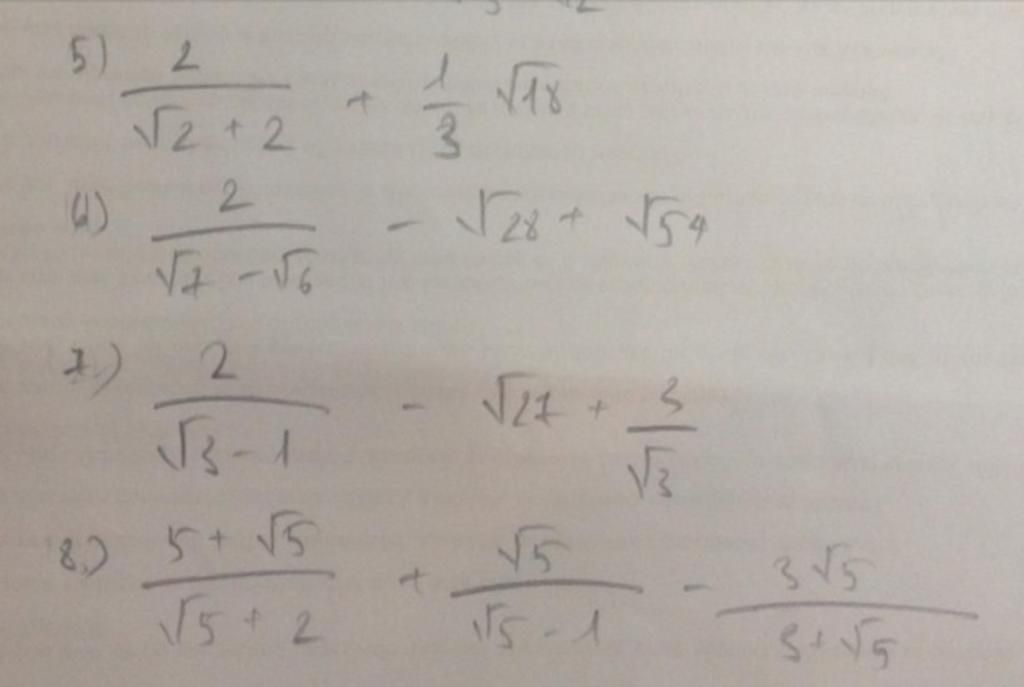 5) 2/(√2 + 2) + 1/3 √18
6) 2/(√7 - √6) - √28 + √54
7.) 2/(√3 - 1) - √27 + 3/√3
8.) (5 + √5)/(√5 + 2) + √5/(√5 - 1) - 3√5/(3 + √5)